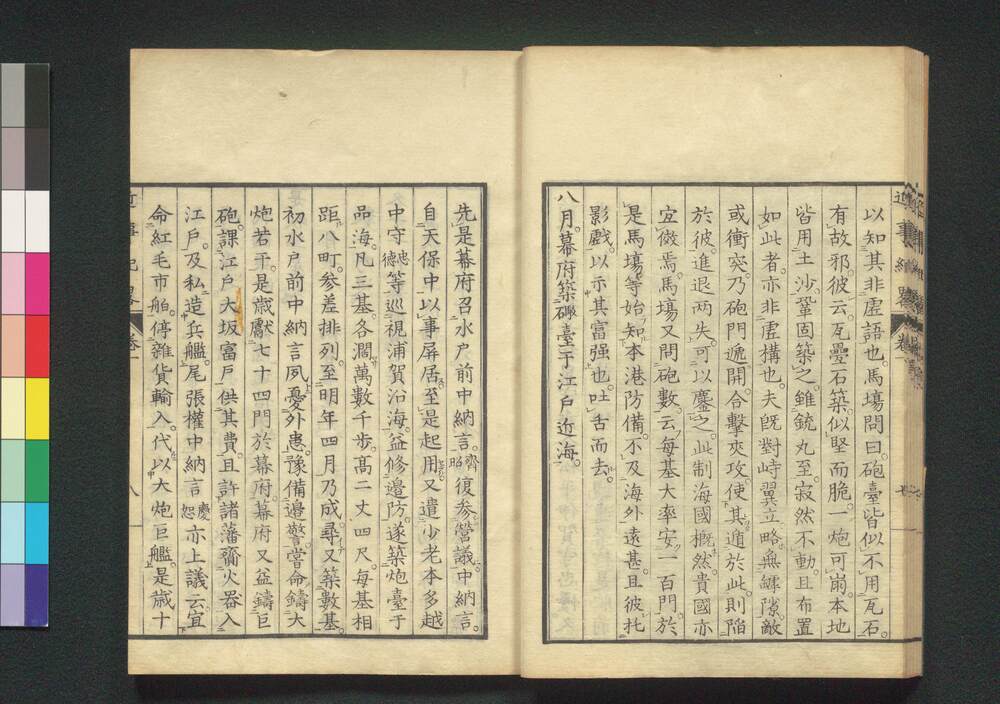 以知其非虛語也。馬塲問曰。砲臺皆似不用瓦石。
有故邪。彼云。瓦疊石築。似堅而脆。一炮可崩。本地
皆用土沙。鞏固築之。錐銃丸至。寂然不動。且布置
如此者。亦非虛構也。夫既對峙翼立。略無罅隙。敵
或衝突。乃砲門遞開。合擊夾攻。使其遁於此。則陷
於彼。進退兩失。可以鏖之。此制海國概然。貴國亦
宜倣焉。馬塲又問砲數。云每基大率安一百門。於
是馬塲等始知本港防備。不及海外遠甚。且彼托
影戲。以示其富强也。吐舌而去。
八月。幕府築礮臺于江戶近海。
先是幕府召水户前中納言。齊昭復參營議。中納言。
自天保中以事屏居。至是起用。又遣少老本多越
中守忠德等。巡視浦賀沿海。益修邊防。遂築炮臺于
品海。凡三基。各濶萬數千步。高二丈四尺。每基相
距八町。參差排列。至明年四月乃成。尋又築數基。
初水户前中納言夙憂外患。豫備邊警。嘗命鑄大
炮若干。是歲獻七十四門於幕府。幕府又益鑄巨
砲。課江戶大坂富戶。供其費。且許諸藩齎火器入
江戶。及私造兵艦。尾張權中納言慶恕亦上議云。宜
命紅毛市舶。停雜貨輸入。代以大炮巨艦。是歲十
近事紀畧 卷一 八